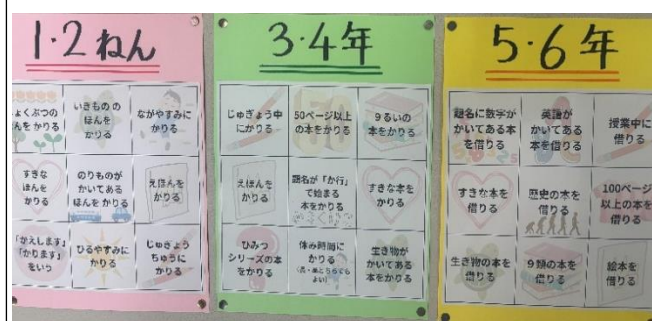 1・2ねん
ょくぶつの
んを かりる
いきもの の
ほんを
かりる
ながやすみに
かりる
すきな
ほんを
かりる
のりものが
かいてある
ほんを かりる
えほんを
かりる
「かえします」
「かります」
をいう
ひるやすみに
かりる
じゅぎょう
ちゅうに
かりる
3・4年
じゅぎょう中
にかりる
50ページ以上
の本をかりる
9るいの
本をかりる
えほんを
かりる
題名が「か行」
で始まる
本をかりる
すきな本を
かりる
ひみつ
シリーズの本
をかりる
休み時間に
かりる
よい)
生き物が
かいてある
本をかりる
5・6年
題名に数字が
かいてある本
を借りる
英語が
かいてある
本を借りる
授業中に
借りる
すきな本を
借りる
歴史の本を
借りる
100ページ
以上の本を
借りる
生き物の本を
借りる
9類の本を
借りる
絵本を
借りる